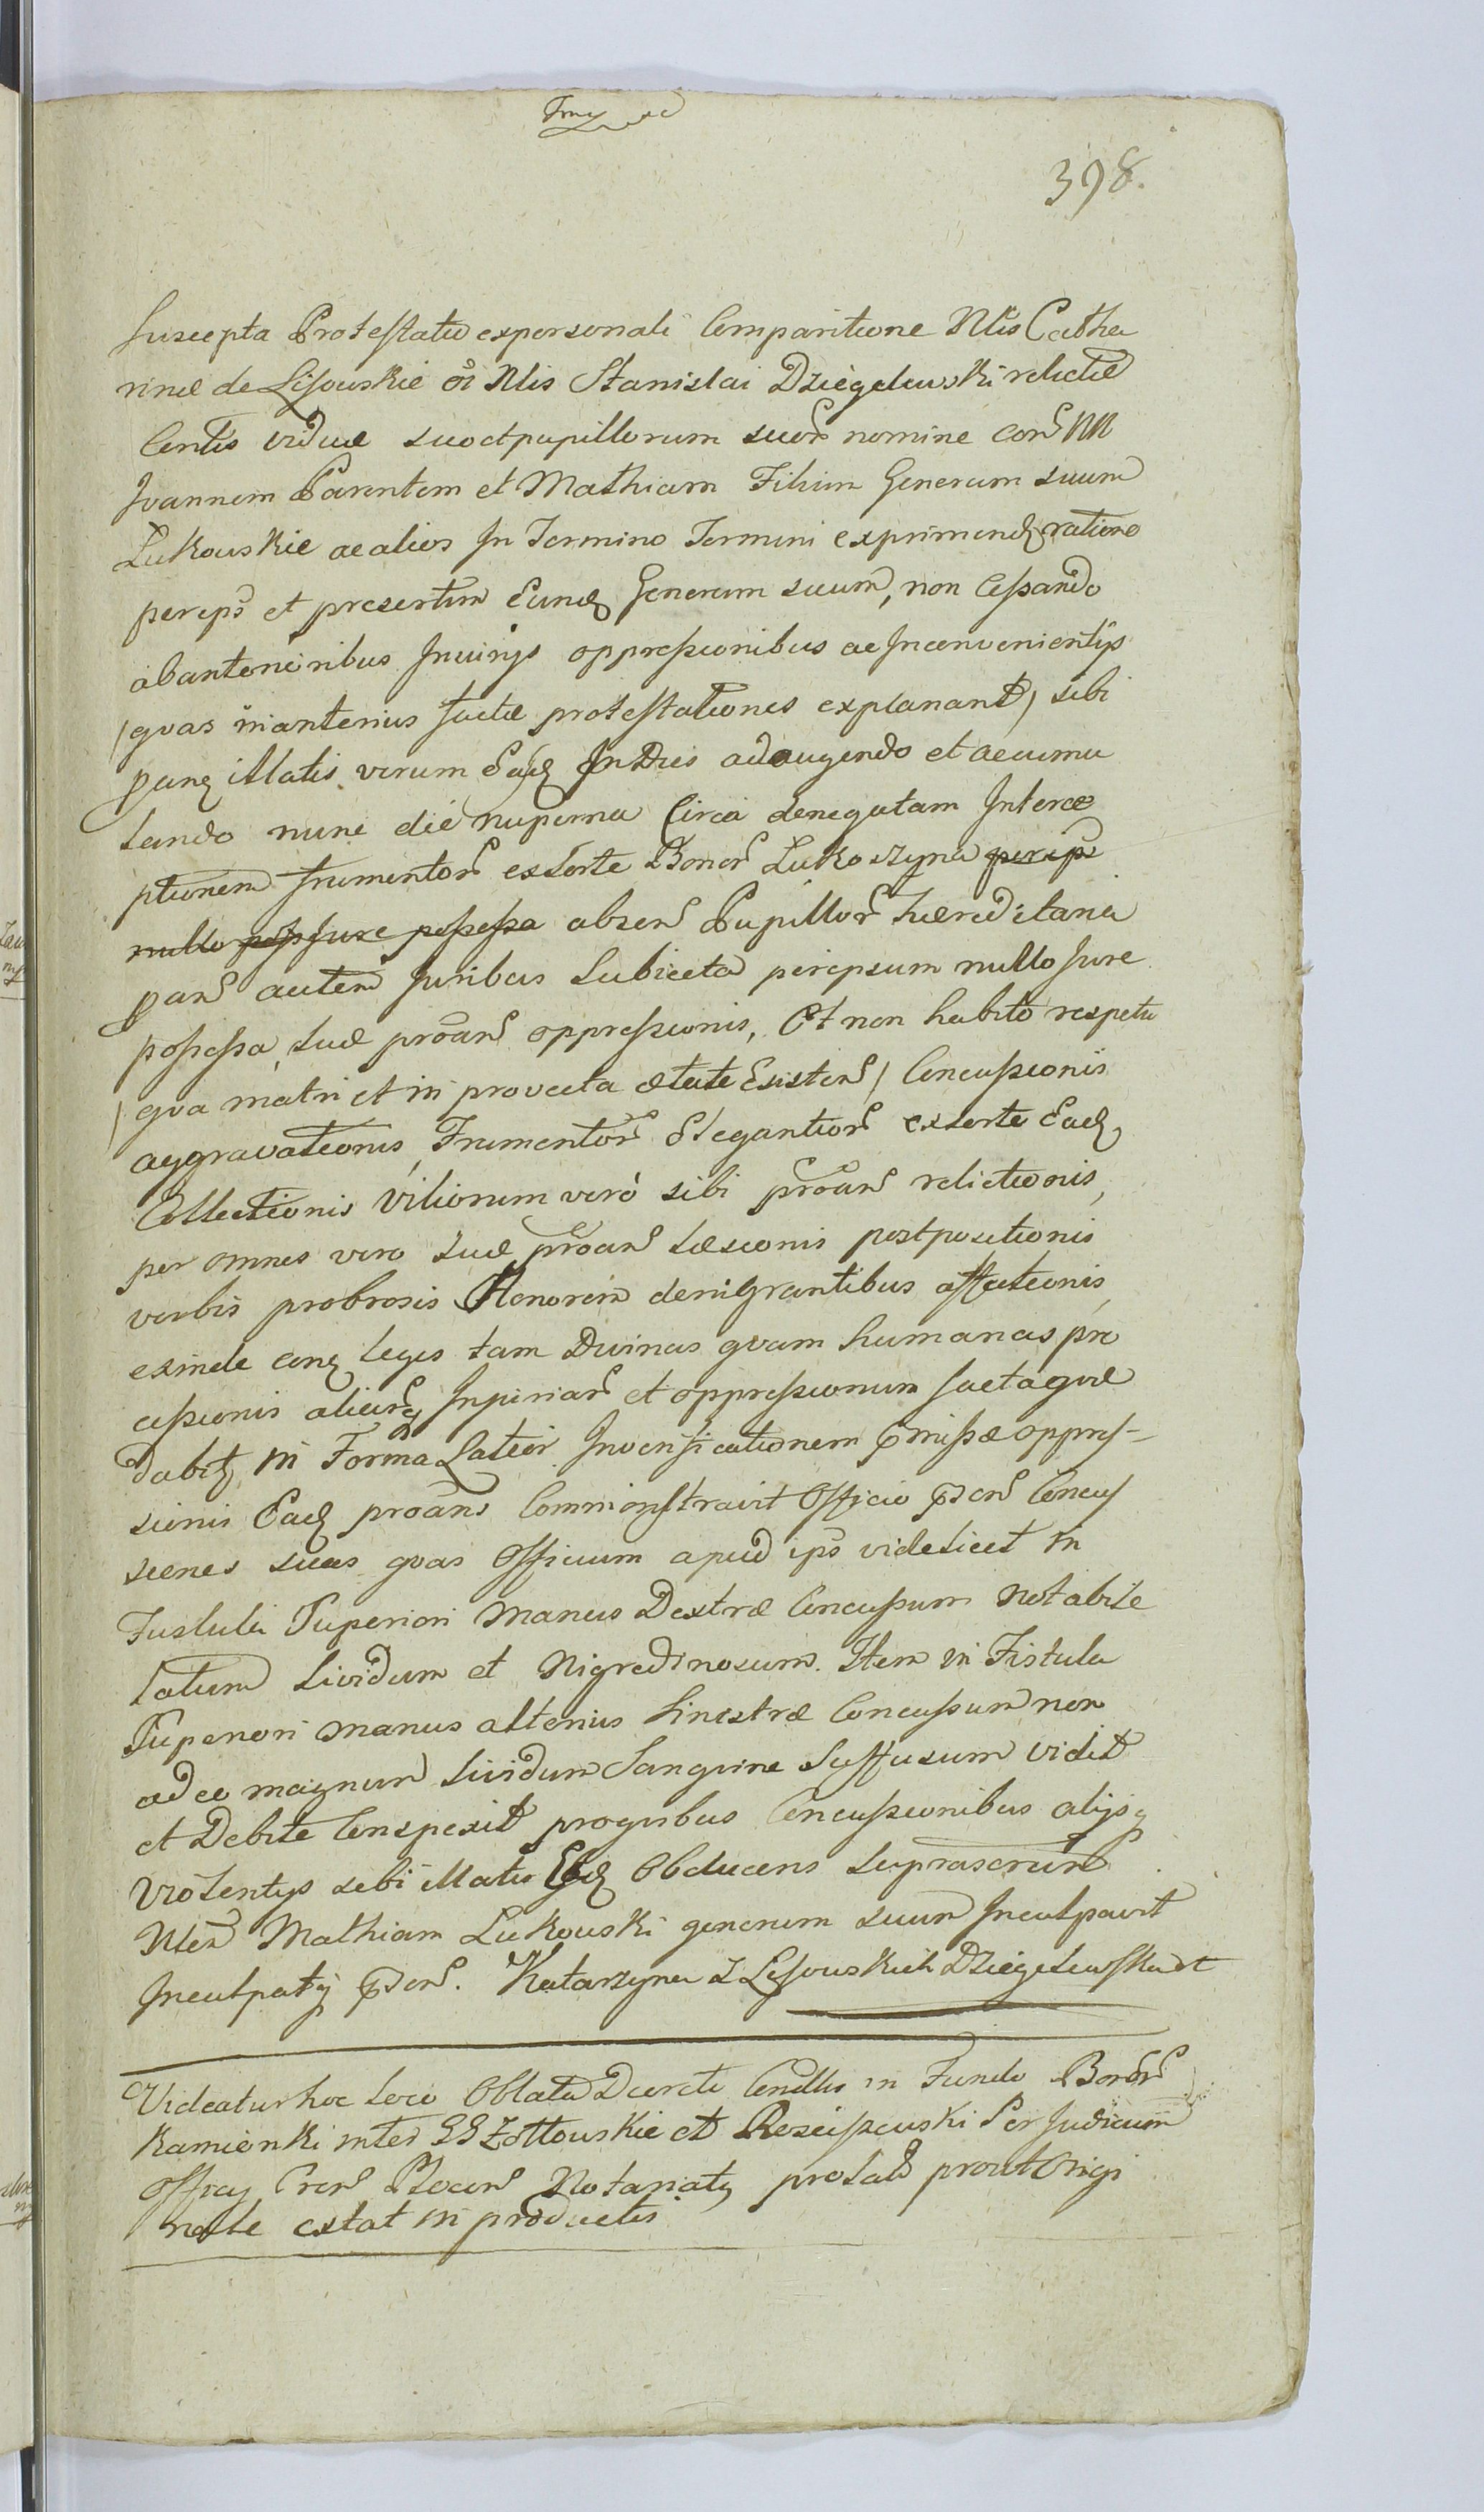 398.
Suscepta Protestatio ex personali Comparitione Nlis Catha
rinæ de Lisowskie oī Nlis Stanislai Dzięgelewski relictæ
Constis viduæ suo et pupillorum suor nomine con NN
Joannem Parentem et Mathiam Filium Generum suum
Lukowskie ac alios In Termino Termini exprimend ratione
pereps et presertim Eund Generum suum, non Cessando
ab anterioribus Iniurijs oppressionibus ac Inconvenientijs
(quas in anterius factæ protestationes explanant) sibi
panq illatis verum Ead In Dies adaugendo et accumu
lando nunc die nuperna Circa denegatam Interce
ptionem frumentor ex sorte Bonor Lukoszyna pereps
nullo poss Jure possessa absen Pupillor hæreditaria
pan autem Juribus Subiecta perepsum nullo Jure
possessa, suæ proan oppressionis, Et non habito respetu
(qva matri et in provecta ætate Existen) Concussionis
aggravationis, Frumentor Elegantior ex sorte Ead
Collectionis Viliorum verò sibi proan relictionis,
per omnes vero suæ proan læsionis postpositionis
verbis probrosis Honorem denigrantibus affationis,
exinde conq leges tam Divinas qvam humanas pro
cessionis aliarq Injuriar et oppressionum facta qvæ
dabit in Forma Latior Inversificationem pmissæ oppres-
sionis Ead proans Commonstravit Officio pnt Concus
siones suas qvas Officium apud ips videlicet in
Fustula Superiori manus Dextræ Concussum notabile
latum lividum et Nigredinosum. Item in Fistula
Superiori manus alterius Sinistræ Concussum non
adeo magnum lividum Sanguine Suffusum vidit
et Debite Conspexit pro qvibus Concussionibus alijsq
violentijs sibi illatis Ead Obducens suprascrip
Nlem Mathiam Lukowski generum suum Inculpavit
Inculpatq pnt. Katarzyna z Lisowskich Dzięgelewska
Videatur hoc loco Oblata Decreti Condlis in Fundo Bonor
Kamionki inter GG Zottowskie et Resciszewski Per Judicium
Officij Cren Plocen Notariatq prolati prout Origi
nale extat in productis